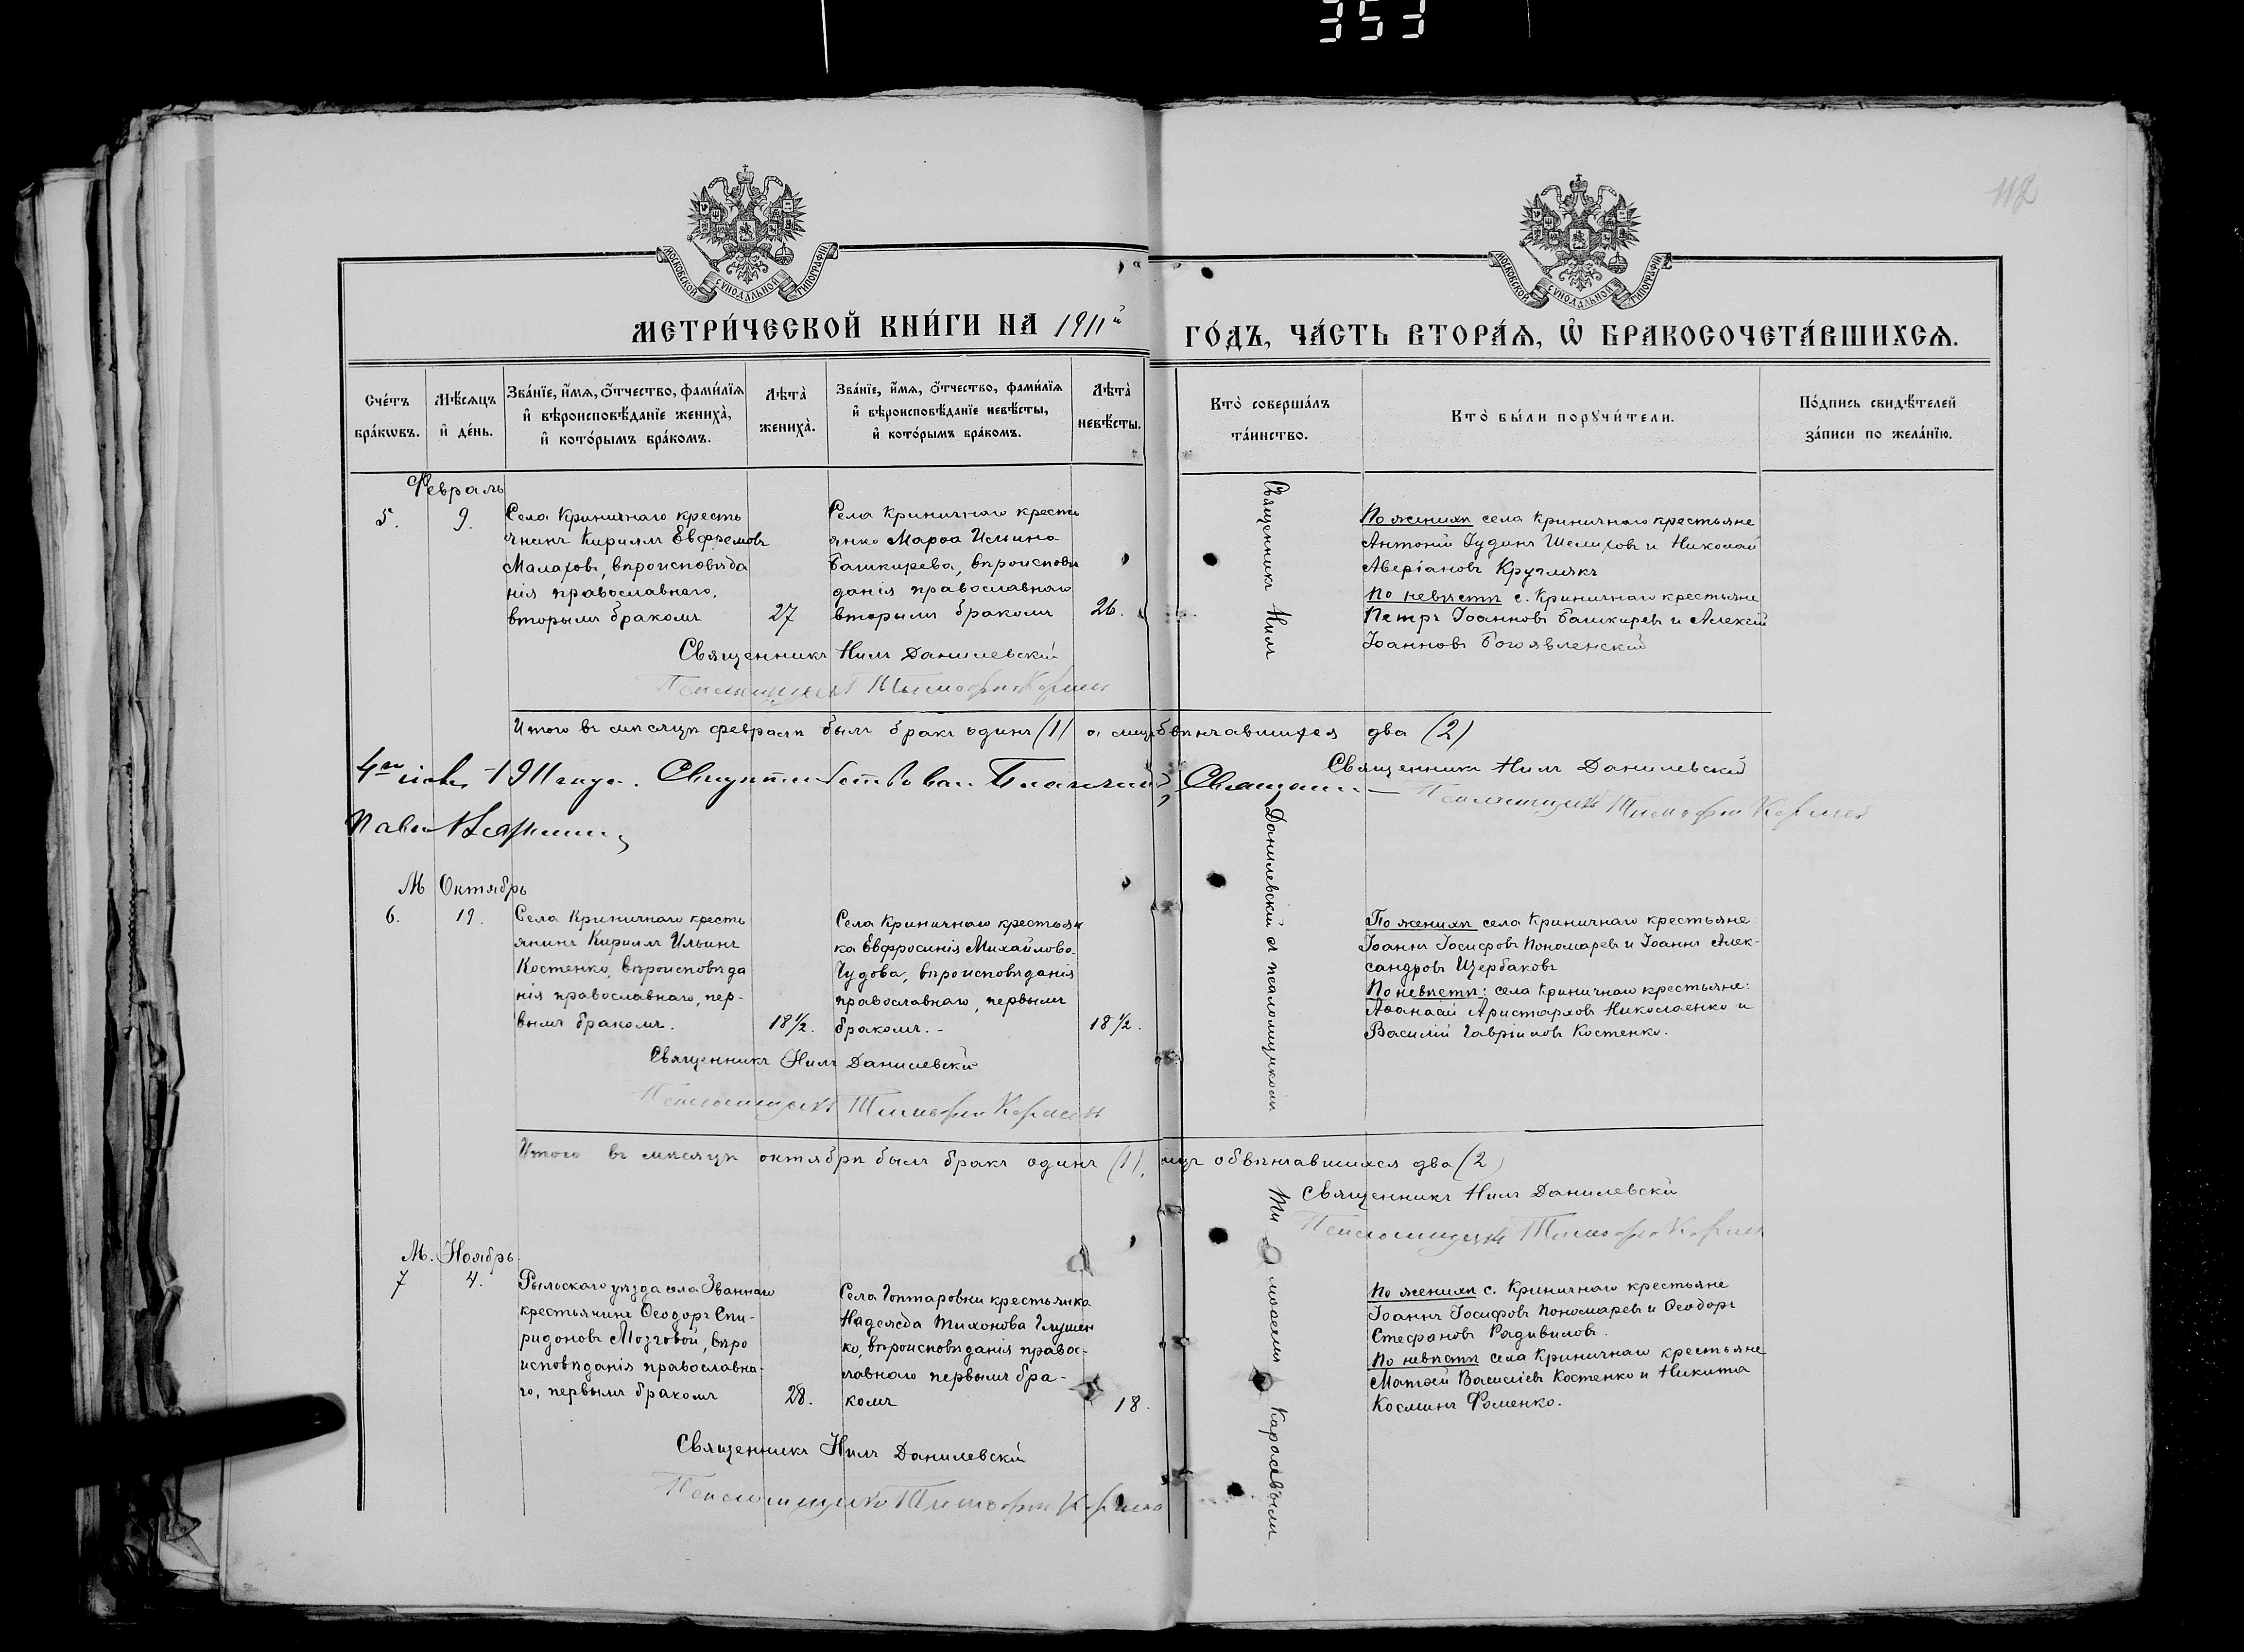 353
112
МОСКОВСКОЙ СУНОДАЛЬНОЙ ТИПОГРАФІИ
МОСКОВСКОЙ СУНОДАЛЬНОЙ ТИПОГРАФІИ
МЕТРИ́ЧЕСКОЙ КНИ́ГИ НА 1911й ГО́ДЪ, ЧА́СТЬ ВТОРА́Я, Ѿ БРАКОСОЧЕТА́ВШИХСЯ.
Сче́тъ
бра́кωвъ.
Мѣ́сяцъ
и҆ де́нь.
Зва́нїе, и҆́мѧ, ѻ҆́тчество, фами́лїѧ
и҆ вѣроисповѣ́данїе женихà,
и҆ кото́рымъ бра́комъ.
Лѣтà
женихà.
Зва́нїе, и҆́мѧ, ѻ҆́тчество, фами́лїѧ
и҆ вѣроисповѣ́данїе невѣ́сты,
и҆ кото́рымъ бра́комъ.
Лѣтà
невѣ́сты.
Кто̀ соверша́лъ
та́инство.
Кто̀ бы́ли порꙋчи́тели.
По́дпись свидѣ́телей
за́писи по жела́нїю.
Февраль
5.
9.
Села Криничнаго кресть
янинъ Кириллъ Евфремовъ
Малаховъ, вѣроисповѣда
нія православнаго,
вторымъ бракомъ
27
Села Криничнаго кресть
янка Марѳа Ильина
Башкирева, вѣроисповѣ
данія православнаго
вторымъ бракомъ
26.
По женихѣ села Криничнаго крестьяне
Антоній Іудинъ Шелиховъ и Николай
Аверіановъ Круглякъ
По невѣстѣ с. Криничнаго крестьяне
Петръ Іоанновъ Башкиревъ и Алексій
Іоанновъ Богоявленскій
Священникъ Нилъ Данилевскій
Псаломщикъ Тимоѳей
Итого въ мѣсяцѣ февралѣ былъ бракъ одинъ (1) обвѣнчавшихся два (2)
Священникъ Нилъ Данилевскій
Псаломщикъ Тимоѳей
1911 года. Свидѣтельствовалъ Благочинный, Священникъ
Павелъ
Священникъ Нилъ Данилевскій съ псаломщикомъ Тимоѳеемъ
М Октябрь
6.
19.
Села Криничнаго кресть
янинъ Кириллъ Ильинъ
Костенко, вѣроисповѣда
нія православнаго, пер-
вымъ бракомъ.
18½.
Села Криничнаго крестьян
ка Евфросинія Михайлова
Чудова, вѣроисповѣданія
православнаго, первымъ
бракомъ.-
18½.
По женихѣ села Криничнаго крестьяне
Іоаннъ Іосифовъ Пономаревъ и Іоаннъ Алек-
сандровъ Щербаковъ
По невѣстѣ: села Криничнаго крестьяне:
Аѳанасій Аристарховъ Николаенко и
Василій Гавріиловъ Костенко.
Священникъ Нилъ Данилевскій
Псаломщикъ Тимоѳей
Итого въ мѣсяцѣ октябрѣ былъ бракъ одинъ (1), лицъ обвѣнчавшихся два (2)
Священникъ Нилъ Данилевскій
Псаломщикъ Тимоѳей
М. Ноябрь
7
4.
Рыльскаго уѣзда села Званнаго
крестьянинъ Ѳеодоръ Спи-
ридоновъ Мозговой, вѣро
исповѣданія православна-
го, первымъ бракомъ
28.
Села Гонтаровки крестьянка
Надежда Тихонова Глушен
ко, вѣроисповѣданія право-
славнаго первымъ бра-
комъ
18.
По женихѣ с. Криничнаго крестьяне
Іоаннъ Іосифовъ Пономаревъ и Ѳеодоръ
Стефановъ Радивиловъ.
По невѣстѣ села Криничнаго крестьяне
Матѳей Василіевъ Костенко и Никита
Косминъ Фоменко.
Священникъ Нилъ Данилевскій
Псаломщикъ Тимоѳей